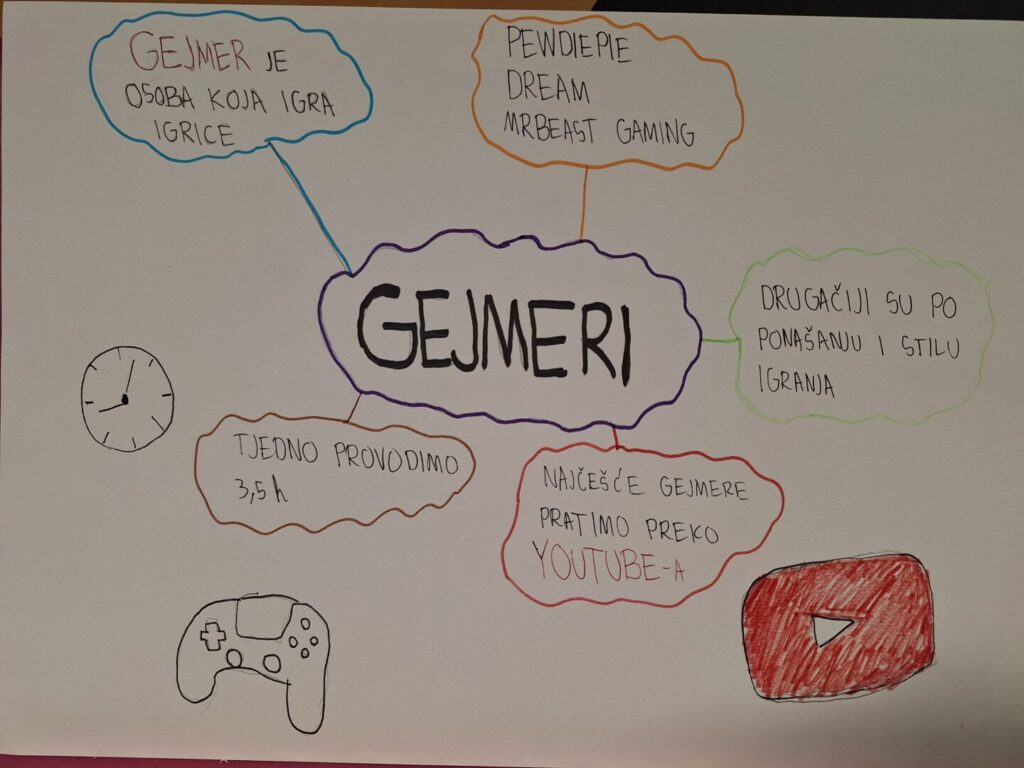 GEJMER JE
OSOBA KOJA IGRA
IGRICE
PEWDIEPIE
DREAM
MRBEAST GAMING
GEJMERI
DRUGAČIJI SU PO
PONAŠANJU I STILU
IGRANJA
TJEDNO PROVODIMO
3,5 h
NAJČEŠĆE GEJMERE
PRATIMO PREKO
YOUTUBE-A